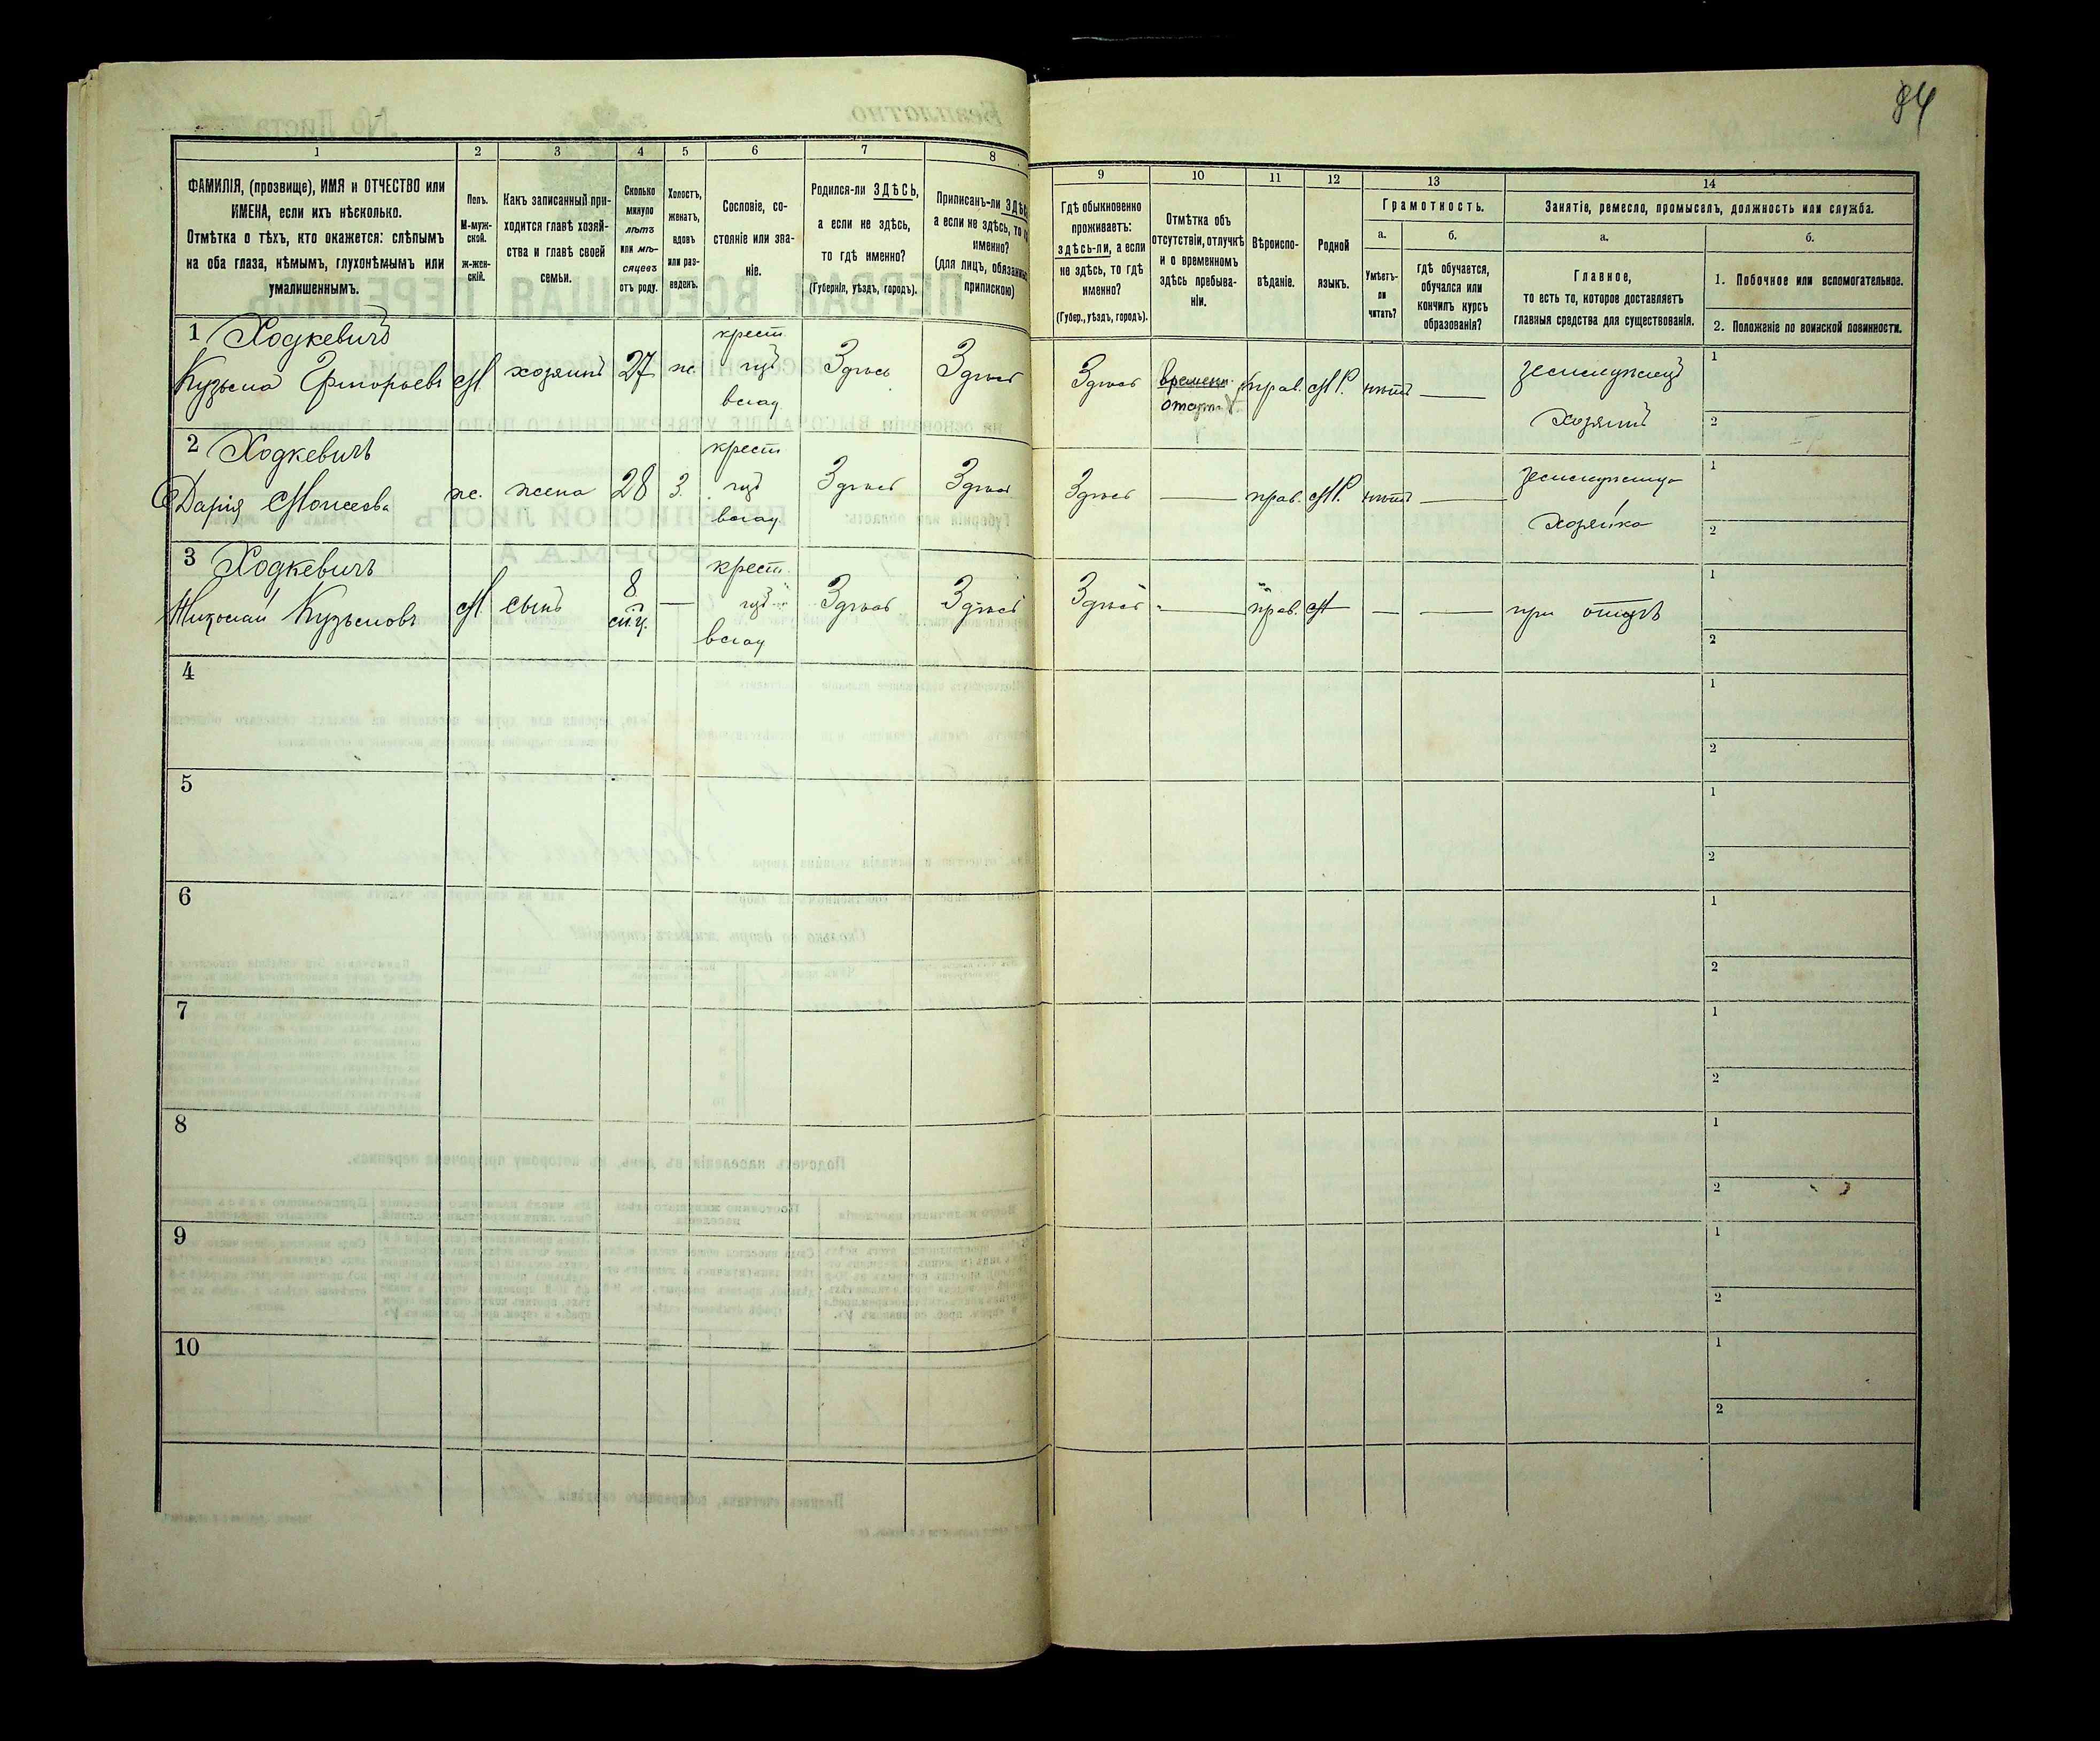 84
1
2
3
4
5
6
7
8
9
10
11
12
13
14
ФАМИЛІЯ, (прозвище), ИМЯ и ОТЧЕСТВО или
ИМЕНА, если ихъ нѣсколько.
Отмѣтка о тѣхъ, кто окажется: слѣпымъ
на оба глаза, нѣмымъ, глухонѣмымъ или
умалишеннымъ.
Полъ.
М-муж-
ской.
ж-жен-
скій.
Какъ записанный при-
ходится главѣ хозяй-
ства и главѣ своей
семьи.
Сколько
минуло
лѣтъ
или мѣ-
сяцевъ
отъ роду.
Холостъ,
женатъ,
вдовъ
или раз-
веденъ.
Сословіе, со-
стояніе или зва-
ніе.
Родился-ли ЗДѢСЬ,
а если не здѣсь,
то гдѣ именно?
(Губернія, уѣздъ, городъ).
Приписанъ-ли
а если не здѣсь, то
именно?
(для лицъ,
припискою)
Гдѣ обыкновенно
проживаетъ:
здѣсь-ли, а если
не здѣсь, то гдѣ
именно?
(Губер., уѣздъ, городъ).
Отмѣтка объ
отсутствіи, отлучкѣ
и о временномъ
здѣсь пребыва-
ніи.
Вѣроиспо-
вѣданіе.
Родной
языкъ.
Грамотность.
а.
Умѣетъ-
ли
читать?
б.
гдѣ обучается,
обучался или
кончилъ курсъ
образованія?
Занятіе, ремесло, промыселъ, должность или служба.
а.
Главное,
то есть то, которое доставляетъ
главныя средства для существованія.
б.
1. Побочное или вспомогательное.
2. Положеніе по воинской повинности.
1 Ходкевичъ
Кузьма Григорьевъ М хозяинъ 27 ж. крест. Здѣсь Здѣсь Здѣсь прав. М.Р. нѣтъ хозяинъ
1
2
2 Ходкевичъ
Дарія Моисеева ж. жена 28 З. крест Здѣсь Здѣсь Здѣсь — прав. М.Р. нѣтъ — хозяйка
1
2
3 Ходкевичъ
Николай Кузьмовъ М сынъ 8 — крест. Здѣсь Здѣсь Здѣсь — прав. М — — при отцѣ
1
2
4
1
2
5
1
2
6
1
2
7
1
2
8
1
2
9
1
2
10
1
2